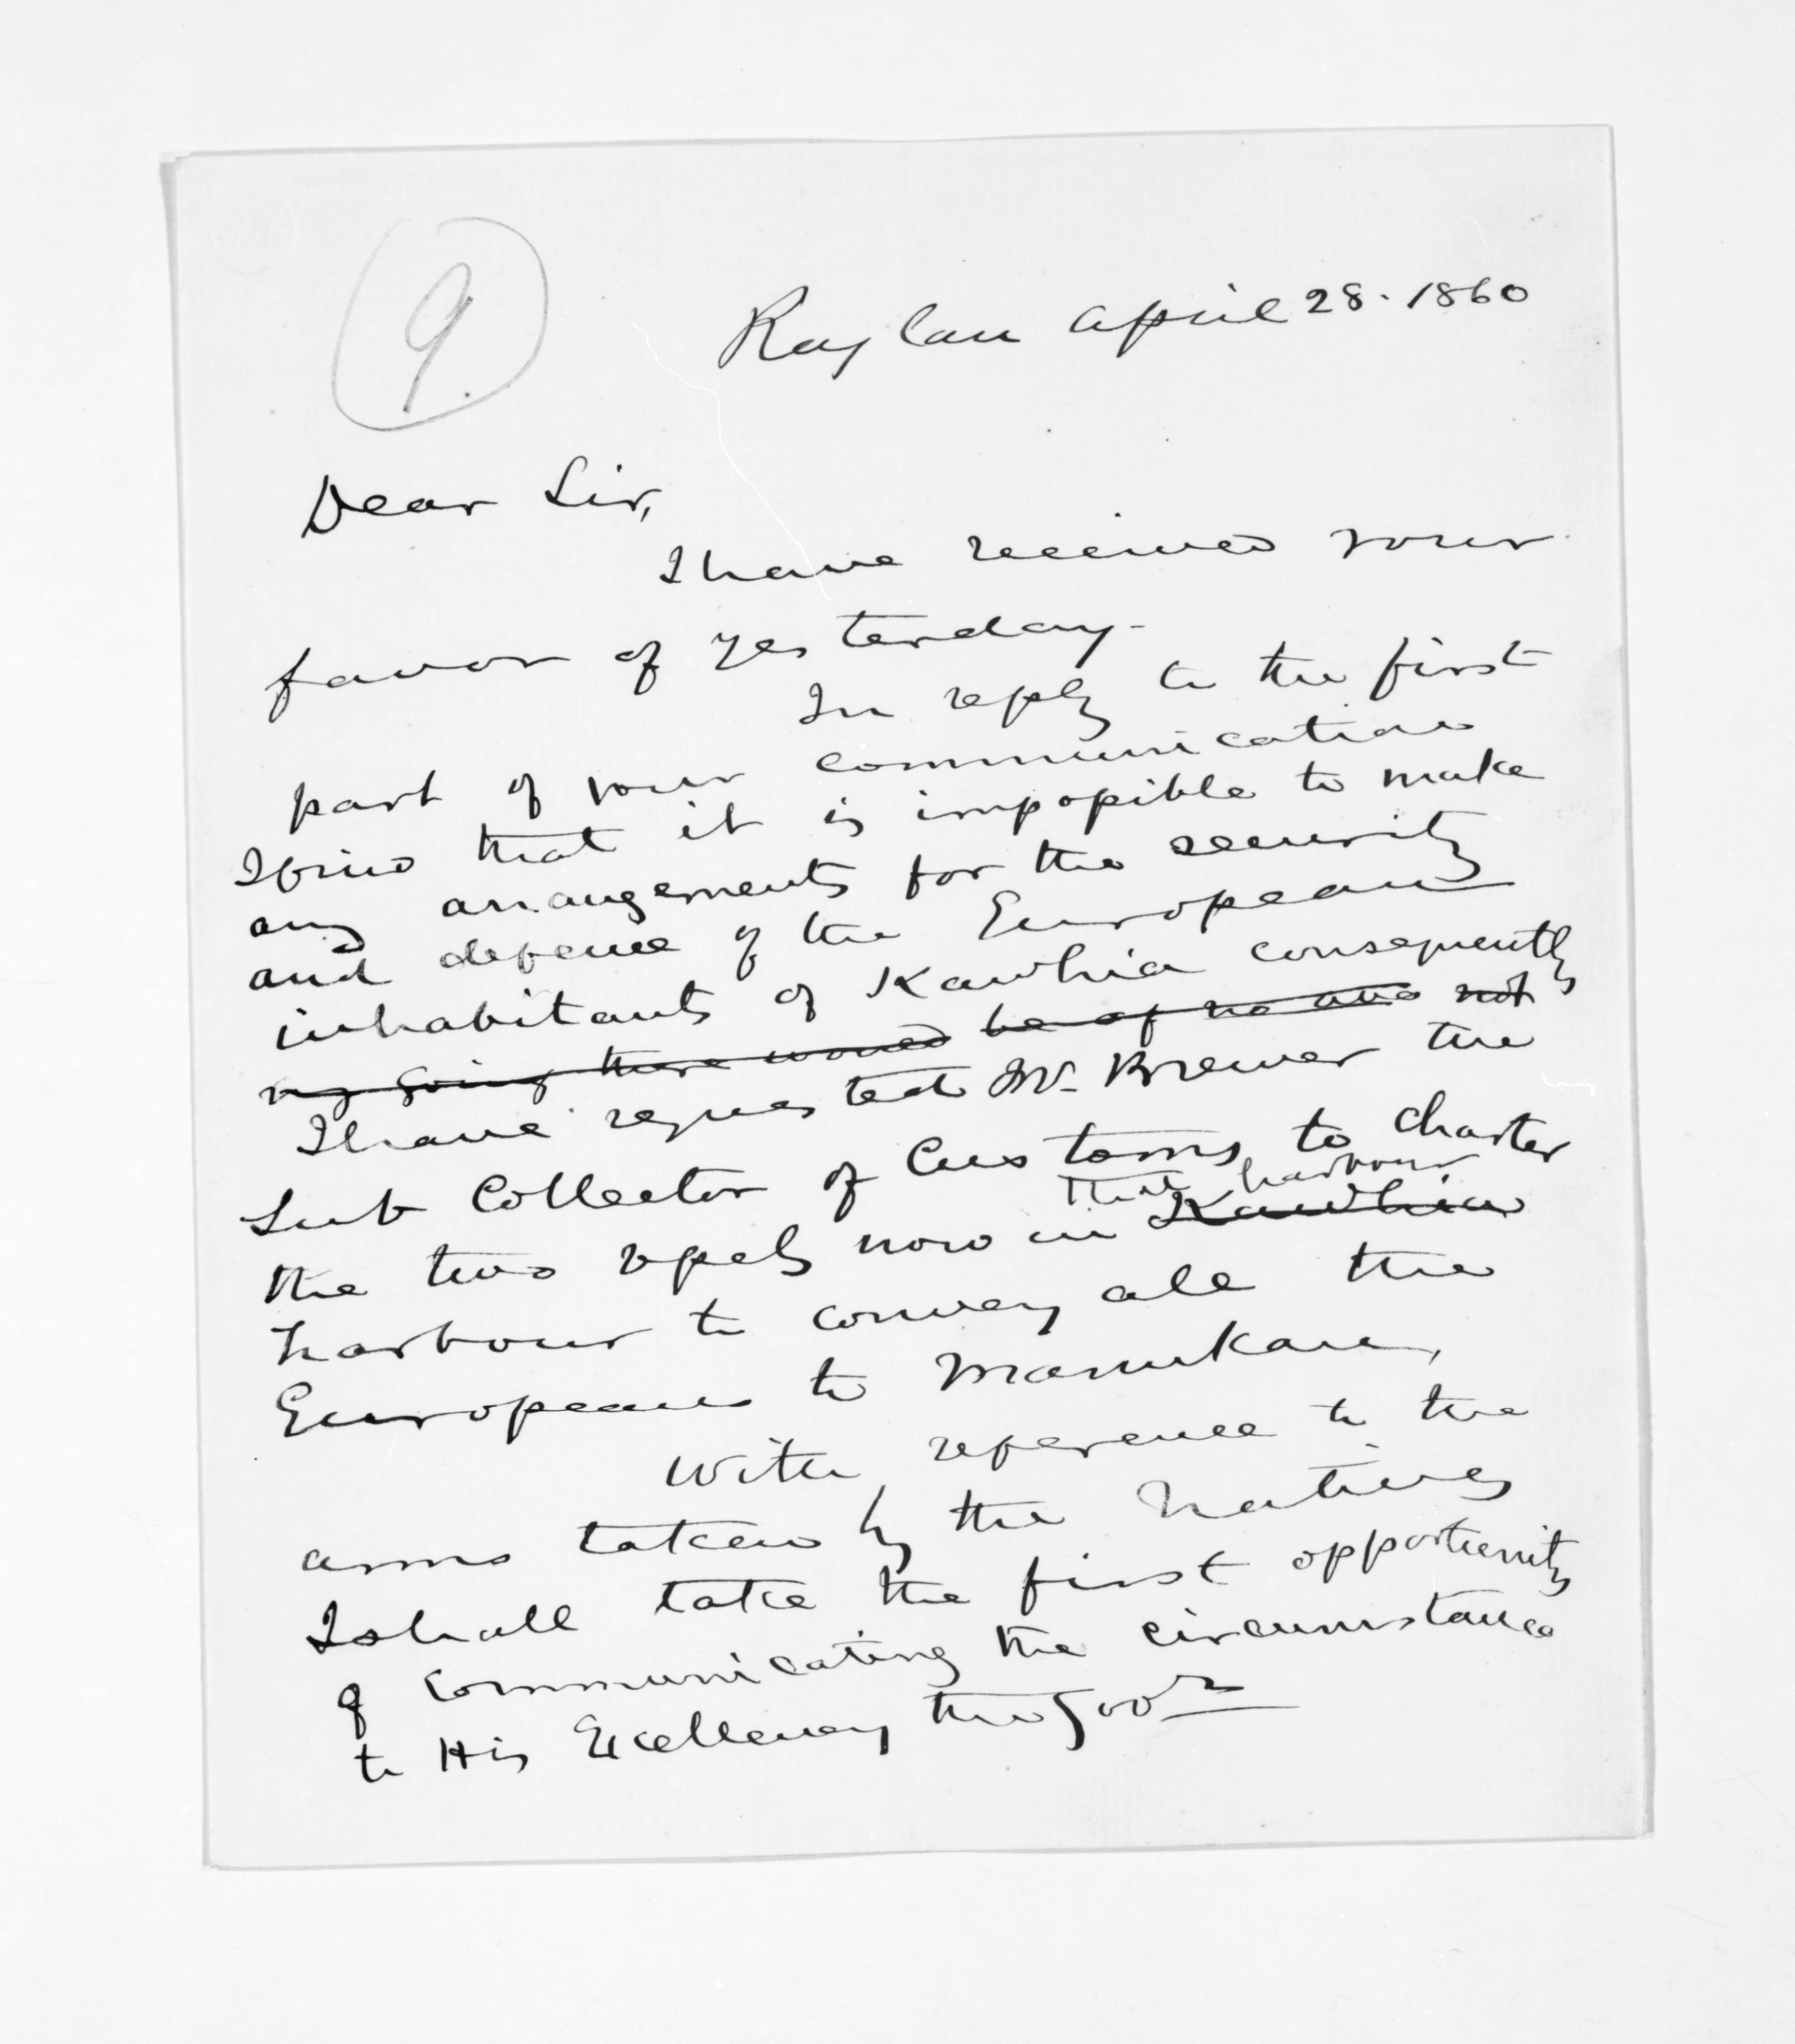 9.
Raglan April 28. 1860
Dear Sir,
I have received your
favor of yesterday.
In reply to the first
part of your communication
I find that it is impossible to make
any arrangements for the security
and defence of the European
inhabitants of Kawhia consequently
my going there would be of no not
I have requested Mr. Brewer the
Sub Collector of Customs to Charter
that harbour
the two vessels now in Kawhia
harbour to convey all the
Europeans to Manukau,
With reference to the
arms taken by the Natives
I shall take the first opportunity
of communicating the circumstance
to His Excellency the Govr